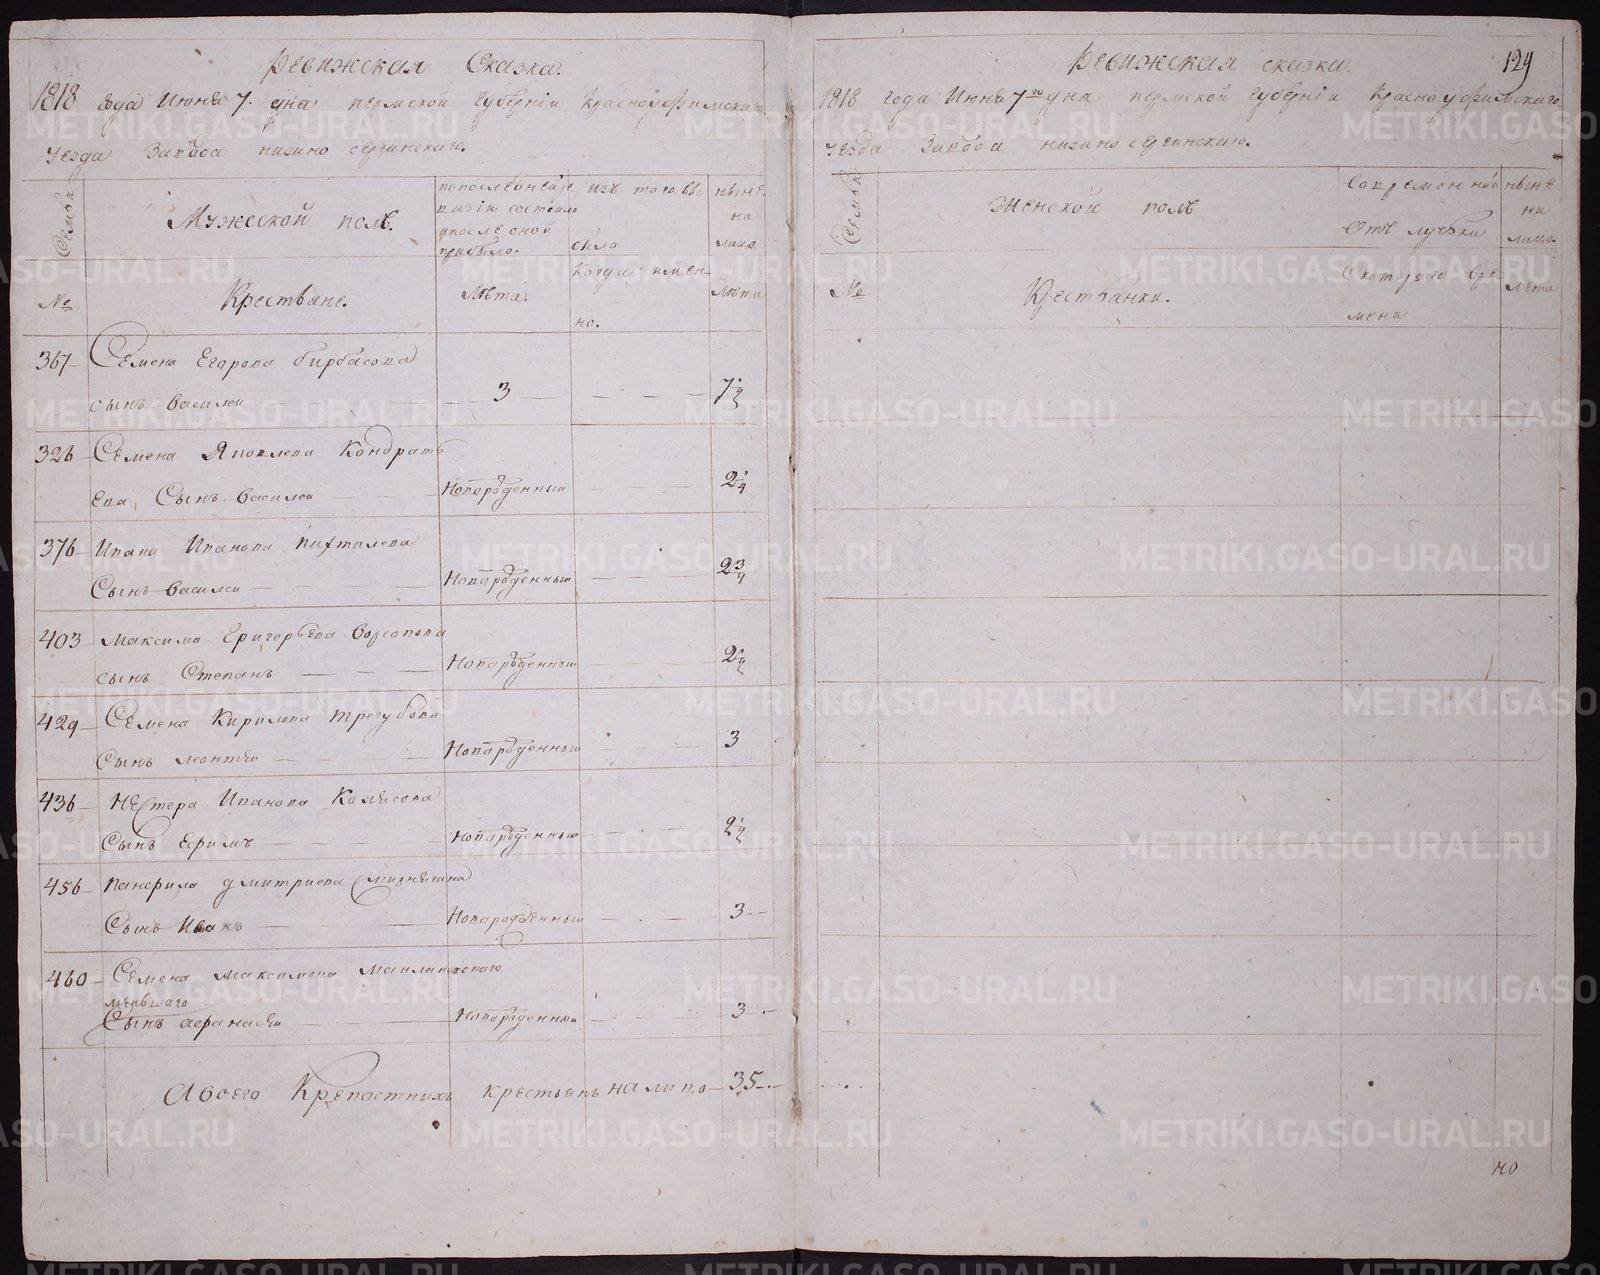 Ревижская Сказка.
1818 года Июня 7. дня пермской губернїи Красноуфимскаго
уезда Завода нижно сергинскаго.
Семьи
Мужеской полъ.
попоследнейре
визїи состояло
ипосле оной
прибыло.
изъ того, вы
было
ныне
на
лицо
№
Крестьяне.
Лѣта.
Когда имен
но.
Лѣта
367 Семена Егорова бирбасова
сынъ Василеи 3
326 Семена Яковлева Кондрать
ева, Сынъ Василеи Новорожденныи
376 Ивана Иванова
Сынъ Василеи Новорожденныи
403 Максима Григорьева
сынъ Степанъ Новорожденныи
429 Семена Кирилова трегубова
Сынъ леонтеи Новорожденныи 3
436 Нестера Иванова
Сынъ Ефимъ Новорожденныи
456 Панфила дмитриева
Сынъ Иванъ Новорожденныи 3
460 Семена максимова
меньшаго
Сынъ афанасеи Новорожденныи 3
Авсего Крепостныхъ крестьянъ налицо 35
129
Ревижская сказка
1818 года Июня 7го дна пермской губернїи Красноуфимскаго
уезда Завода нижно сергинскаго.
Семьи
Женской полъ
Современной
отъ лучьки
ныне
на
лицо.
№
Крестьянки.
Скотораго вре
мени
лета
но
METRIKI.GASO-URAL.RU